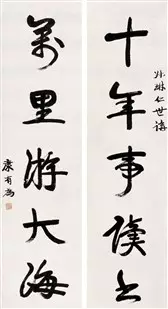 琳仁世講
十年事
萬里游大海
康有為